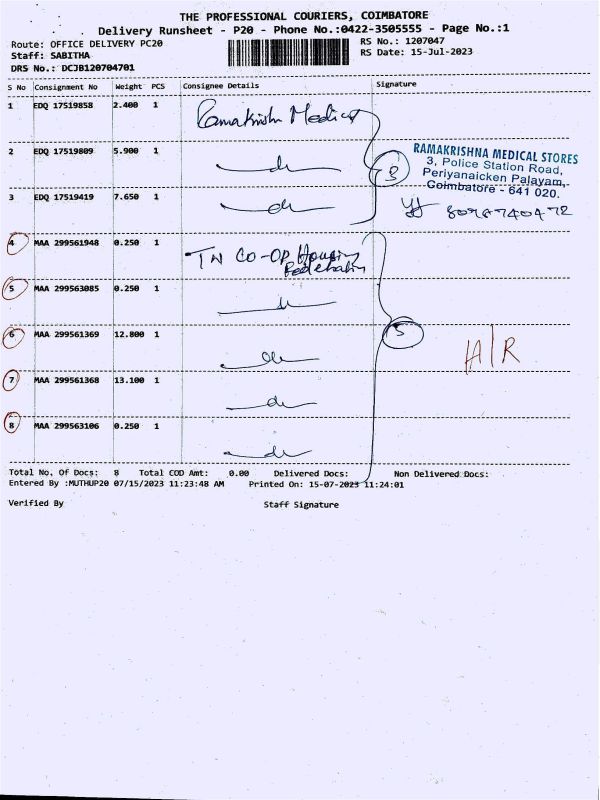 THE PROFESSIONAL COURIERS, COIMBATORE
Delivery Runsheet - P20 - Phone No.:0422-3505555 - Page No.:1
Route: OFFICE DELIVERY PC20
RS No.: 1207047
Staff: SABITHA
RS Date: 15-Jul-2023
DRS No.: DCJB120704701
S No Consignment No Weight PCS Consignee Details Signature
1 EDQ 17519858 2.400 1 Ramakrishn Medical
2 EDQ 17519809 5.900 1 do
RAMAKRISHNA MEDICAL STORES
3, Police Station Road,
Periyanaicken Palayam,
Coimbatore - 641 020.
3
3 EDQ 17519419 7.650 1 do
4 MAA 299561948 0.250 1 TN CO-OP Housing
Federation
5 MAA 299563085 0.250 1 do
6 MAA 299561369 12.800 1 do
5
H/R
7 MAA 299561368 13.100 1 do
8 MAA 299563106 0.250 1 do
Total No. Of Docs: 8 Total COD Amt: 0.00 Delivered Docs: Non Delivered Docs:
Entered By :MUTHUP20 07/15/2023 11:23:48 AM Printed On: 15-07-2023 11:24:01
Verified By Staff Signature